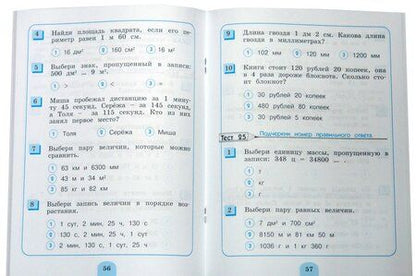 4 Найти площадь квадрата, если его пе-
риметр равен 1 м 60 см.
1 16 дм² 2 160 см² 3 16 м²
5 Выбери знак, пропущенный в записи:
500 дм² ... 9 м².
1 > 2 < 3 =
6 Миша пробежал дистанцию за 1 мину-
ту 45 секунд, Серёжа – за 145 секунд,
а Толя – за 115 секунд. Кто из них
занял первое место?
1 Толя 2 Серёжа 3 Миша
7 Выбери пару величин, которые можно
сравнить.
1 63 км и 6300 мм
2 43 м и 34 м²
3 85 кг и 82 км
8 Выбери запись величин в порядке воз-
растания.
1 1 сут, 2 мин, 25 ч, 130 с
2 130 с, 2 мин, 25 ч, 1 сут
3 2 мин, 130 с, 1 сут, 25 ч
56
9 Длина гвоздя 1 дм 2 см. Какова длина
гвоздя в миллиметрах?
1 102 мм 2 120 мм 3 1200 мм
10 Книга стоит 120 рублей 20 копеек, она
в 4 раза дороже блокнота. Сколько сто-
ит блокнот?
1 30 рублей 20 копеек
2 480 рублей 80 копеек
3 30 рублей 5 копеек
Тест 25 Подчеркни номер правильного ответа.
1 Выбери единицу массы, пропущенную в
записи: 348 ц = 34800 ... .
1 г
2 кг
3 т
2 Выбери пару равных величин.
1 7 дм² и 700 см²
2 8150 м и 81 км 50 м
3 1036 г и 1 кг 360 г
57